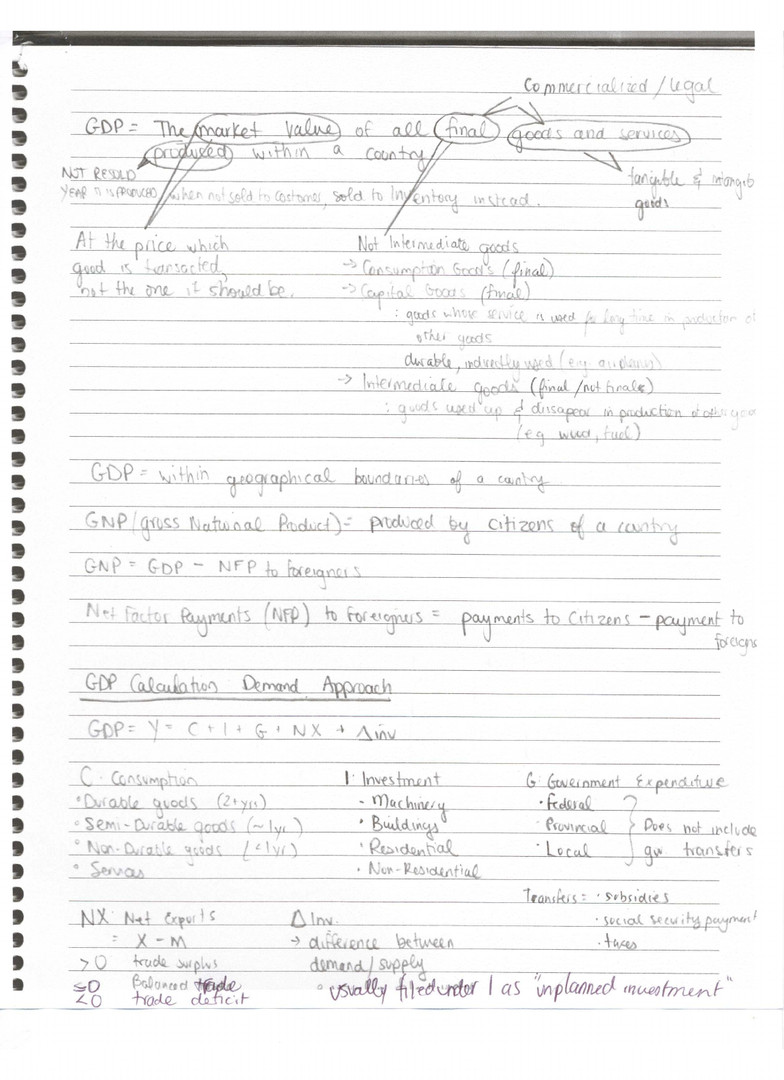 Commercialized / legal
GDP = The market value of all final goods and services
produced within a country
NOT RESOLD
tangible & intangib
goods
YEAR IT IS PRODUCED / when not sold to costumer, sold to Inventory instead.
At the price which
good is transacted,
not the one it should be.
Not Intermediate goods
→ Consumption Goods (final)
→ Capital Goods (final)
: goods whose service is used for long time in production of
other goods
durable, indirectly used (e.g. airplanes)
→ Intermediate goods (final / not finals)
: goods used up & dissapear in production of other goo
(eg wood, fuel)
GDP = within geographical boundaries of a country
GNP (gross National Product) = produced by citizens of a country
GNP = GDP - NFP to foreigners
Net Factor Payments (NFP) to foreigners = payments to citizens - payment to
foreigns
GDP Calculation Demand Approach
GDP = Y = C + I + G + NX + Δ inv
C: Consumption
• Durable goods (2+yrs)
• Semi-Durable goods (~ 1yr)
• Non-Durable goods (<1yr)
• Services
I: Investment
- Machinery
• Buildings
• Residential
• Non-Residential
G: Government Expenditive
• Federal
Provincial
• Local
Does not include
gv transfers
Transfers = • subsidies
• social security payment
• taxes
NX: Net Exports
= X - M
>0 trade surplus
=0 Balanced trade
<0 trade deficit
Δ Inv.
→ difference between
demand / supply
• usually filed under I as "inplanned investment"